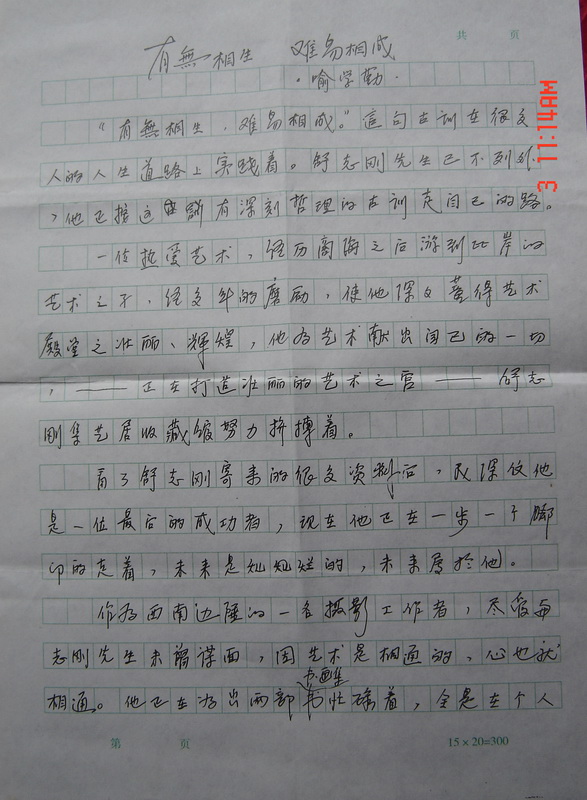 共 页
有無相生 难易相成
·喻学勤·
“有無相生，难易相成。”這句古训在很多
人的人生道路上实践着。舒志刚先生已不列外
，他正按这句訓有深刻哲理的古训走自己的路。
一位热爱艺术，经历商海之后游到此岸的
艺术之子，经多年的磨励，使他深知获得艺术
殿堂之壮丽、辉煌，他为艺术献出自己的一切
，——正在打造壮丽的艺术之宫——舒志
刚集艺居收藏馆努力拚搏着。
看了舒志刚寄来的很多资料后，我深信他
是一位最后的成功者，现在他正在一步一个脚
印的走着，未来是灿灿烂的，未来属於他。
作为西南边陲的一名摄影工作者，尽管与
志刚先生未曾谋面，因艺术是相通的，心也就
书画集
相通。他正在为出两部书忙碌着，全是在个人
第 页
15×20=300
3 11:14AM